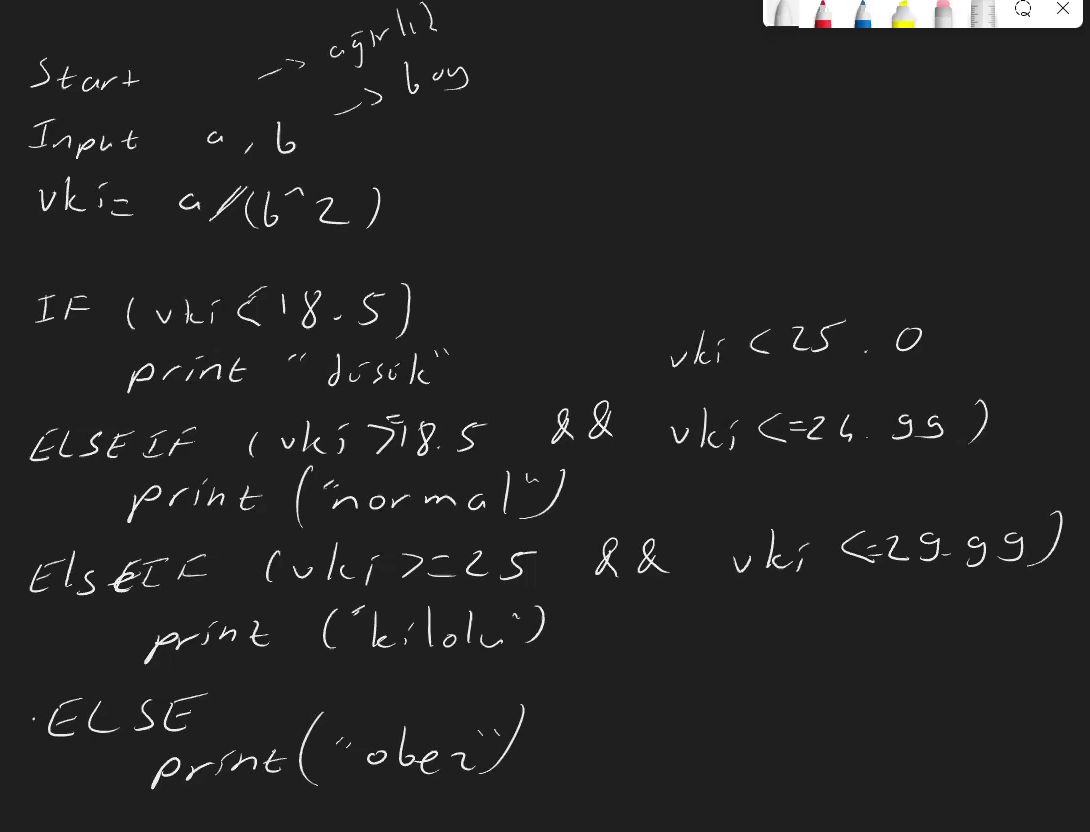 Start → ağırlık
Input a, b → boy
vki= a/(b^2)
IF (vki < 18.5)
print "düsük"
vki < 25.0
ELSEIF (vki >= 18.5 && vki <=24.99)
print ("normal")
ElseIF (vki >=25 && vki <=29.99)
print ("kilolu")
ELSE
print("obez")